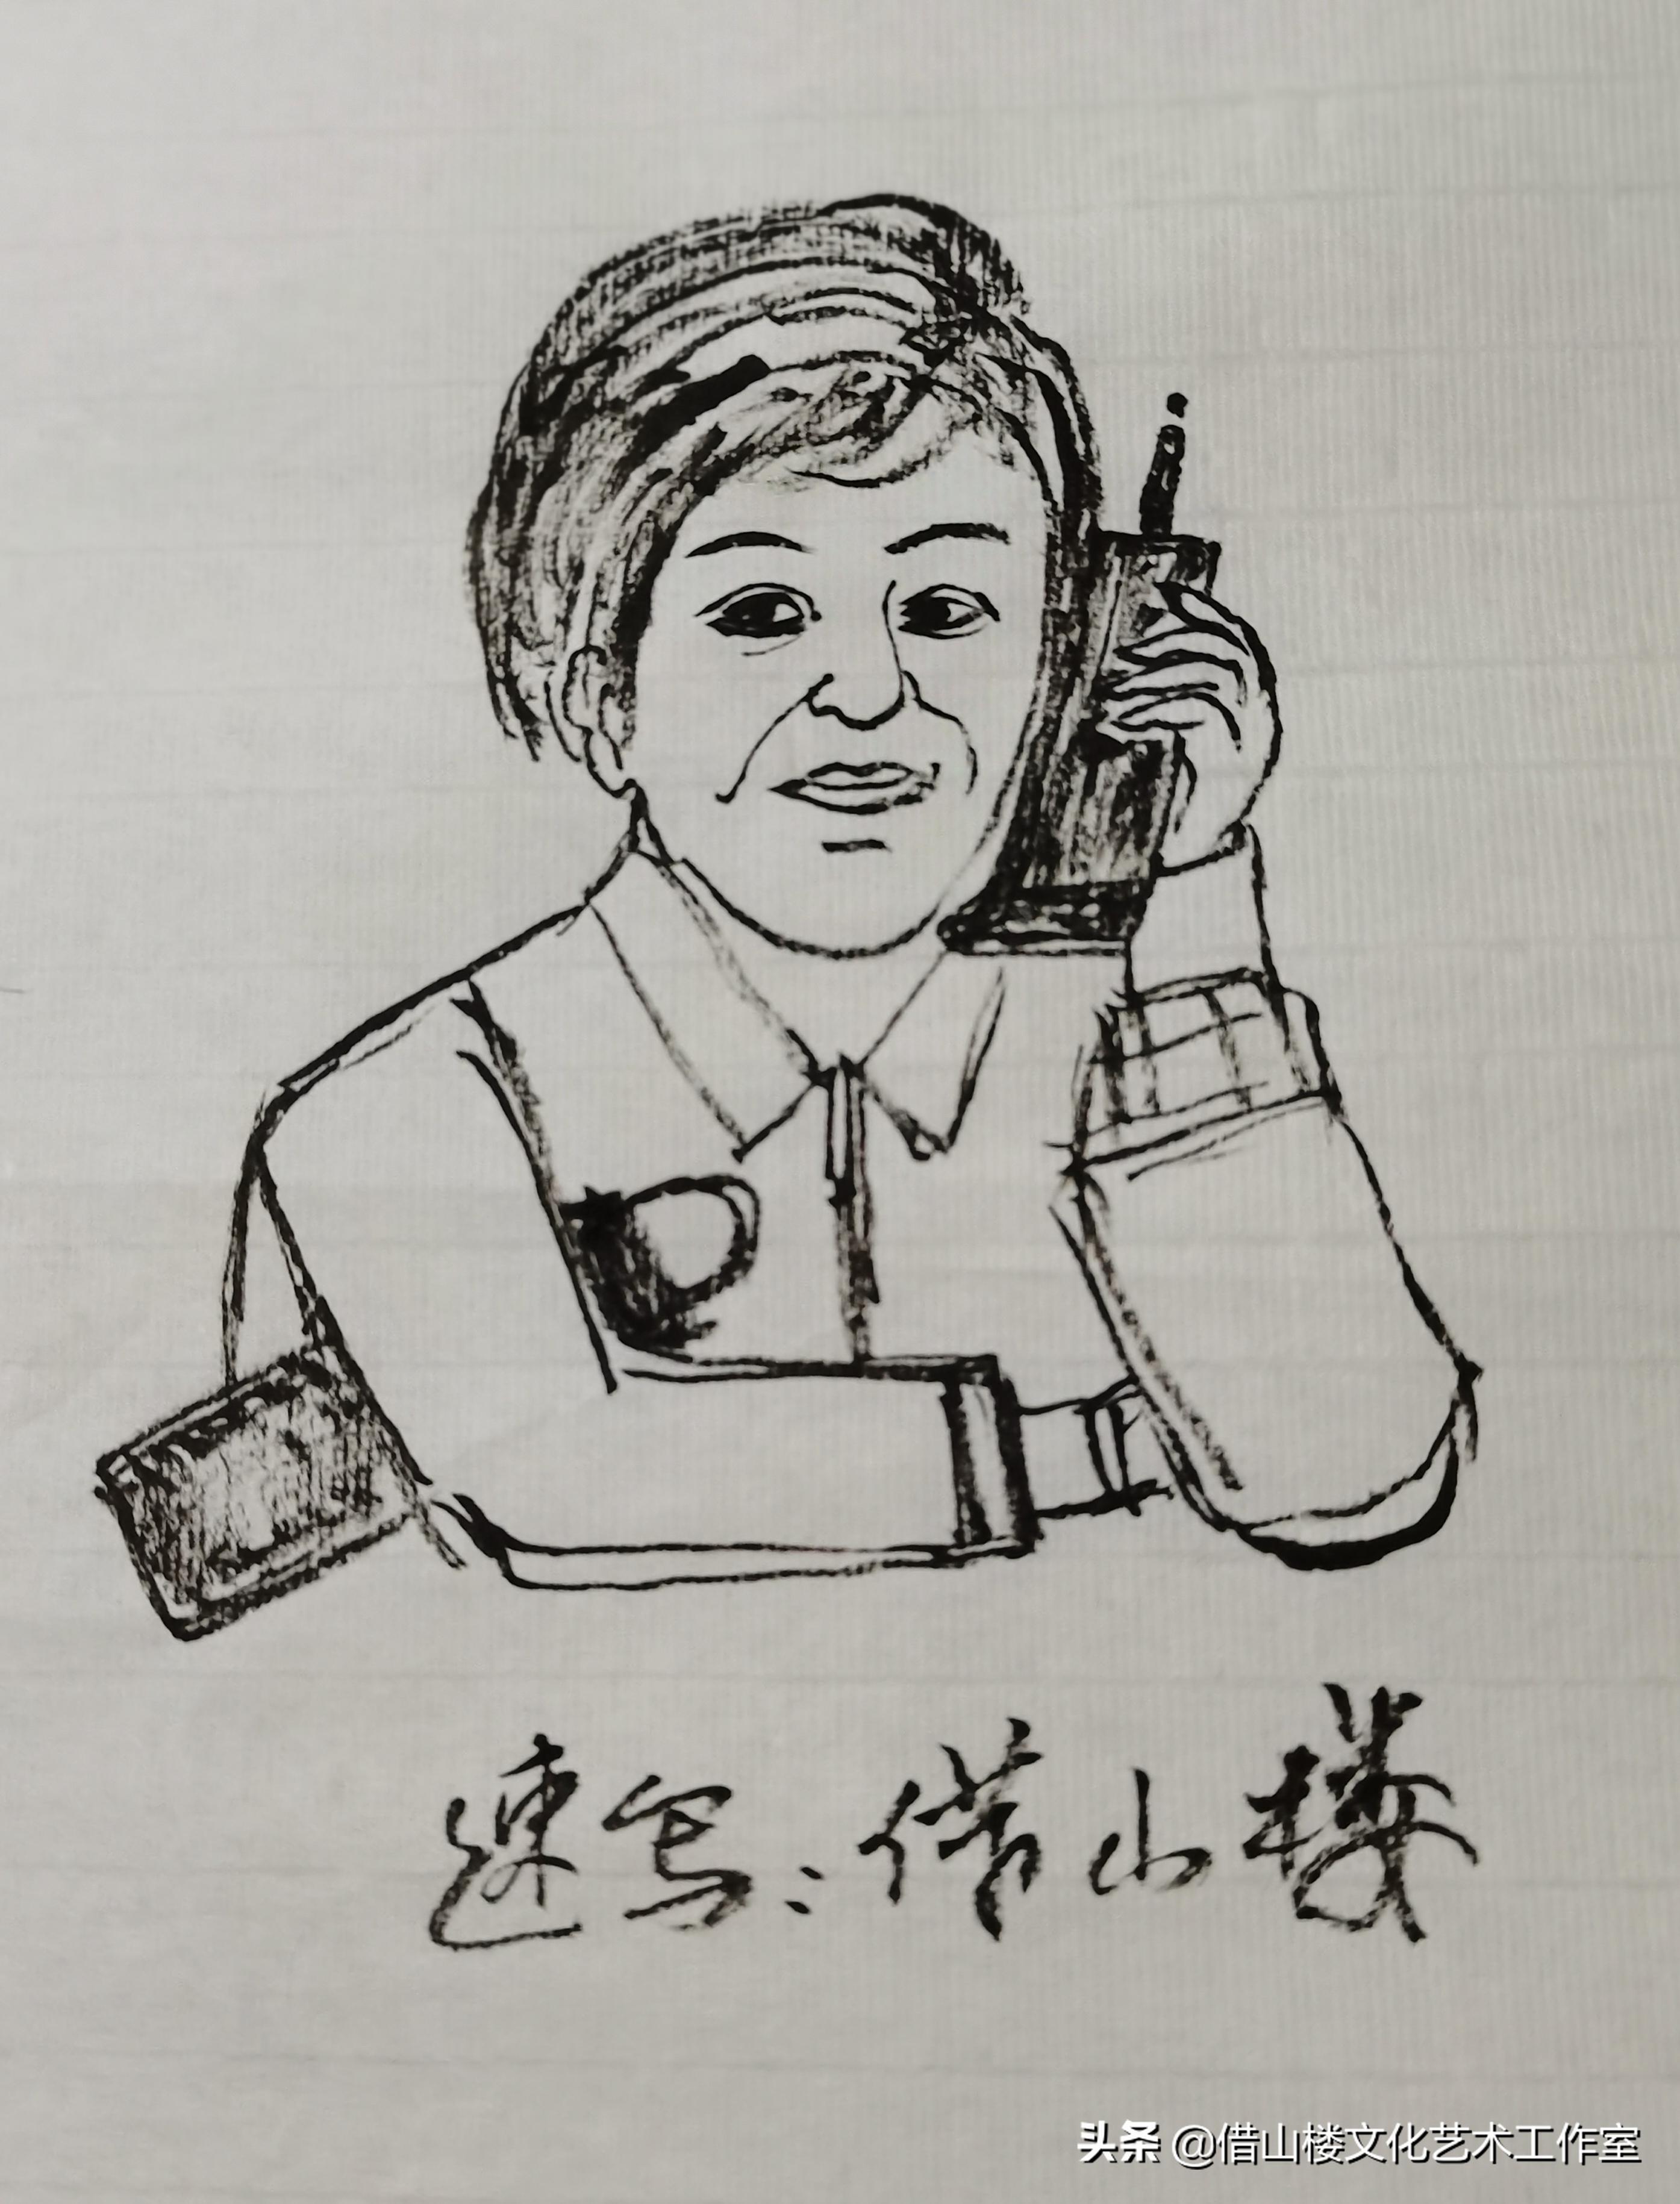 速写:借山楼
头条 @借山楼文化艺术工作室